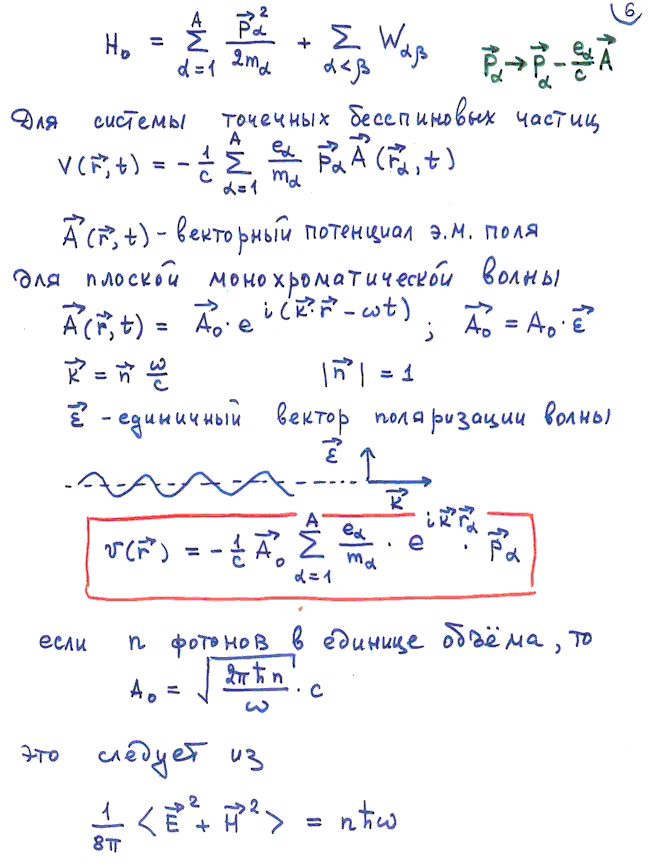 6
H₀ = Σ_{α=1}^{A} p⃗_α²/2m_α + Σ_{α<β} W_{αβ}
p⃗_α → p⃗_α - e_α/c A⃗
Для системы точечных бесспиновых частиц
V(r⃗, t) = - 1/c Σ_{α=1}^{A} e_α/m_α p⃗_α A⃗(r⃗_α, t)
A⃗(r⃗, t) - векторный потенциал э.м. поля
Для плоской монохроматической волны
A⃗(r⃗, t) = A⃗₀ · e^{i(k⃗·r⃗ - ωt)} ; A⃗₀ = A₀ · ε⃗
k⃗ = n⃗ ω/c |n⃗| = 1
ε⃗ - единичный вектор поляризации волны
ε⃗
k⃗
v(r⃗) = - 1/c A⃗₀ Σ_{α=1}^{A} e_α/m_α · e^{ik⃗r⃗_α} · p⃗_α
если n фотонов в единице объёма, то
A₀ = √(2πħn/ω) · c
это следует из
1/8π ⟨E⃗² + H⃗²⟩ = nħω